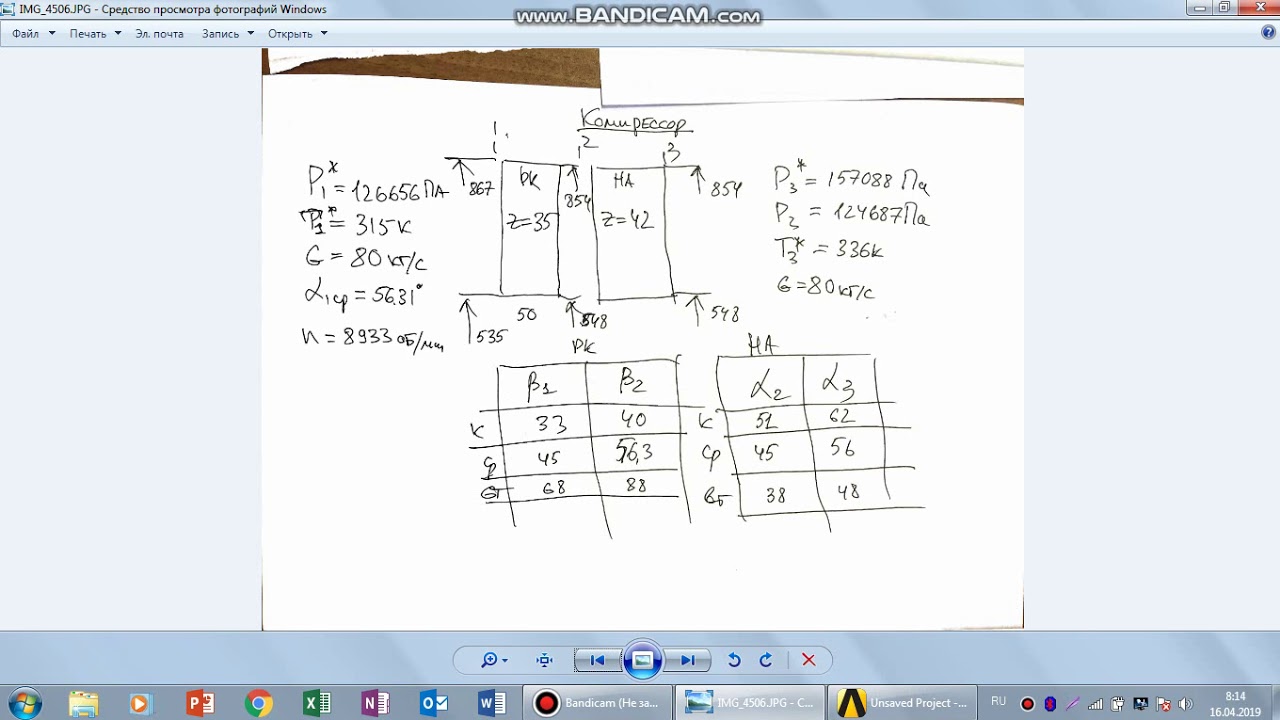 IMG_4506.JPG - Средство просмотра фотографий Windows
www.BANDICAM.com
Файл Печать Эл. почта Запись Открыть
Компрессор
1 2 3
P₁* = 126656 Па
T₁* = 315 К
G = 80 кг/с
α₁ср = 56.31°
n = 8933 об/мин
867
РК
Z=35
854
НА
Z=42
854
535
50
548
548
P₃* = 157088 Па
T₃* = 336к
G = 80 кг/с
РК
β₁ β₂
К 33 40
ср 45 56,3
вт 68 88
НА
α₂ α₃
К 51 62
ср 45 56
вт 38 48
Bandicam (Не за...
IMG_4506.JPG - С...
Unsaved Project -...
RU
8:14
16.04.2019